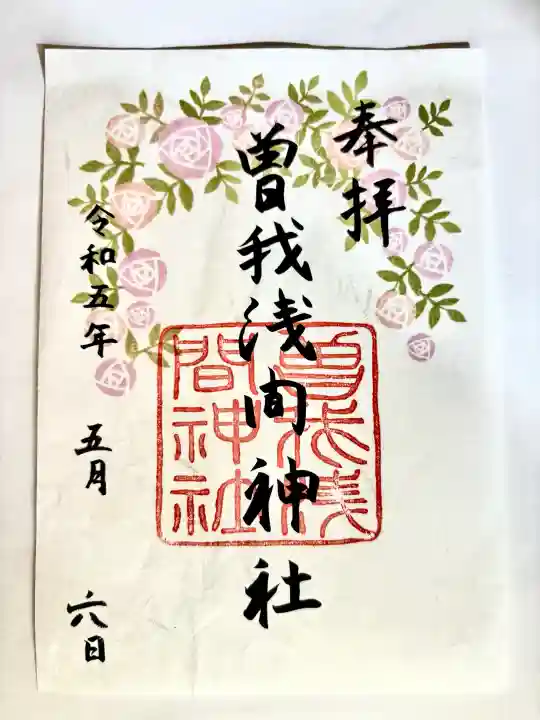 奉拝
曽我浅間神社
曽我浅
間神社
令和五年 五月 六日